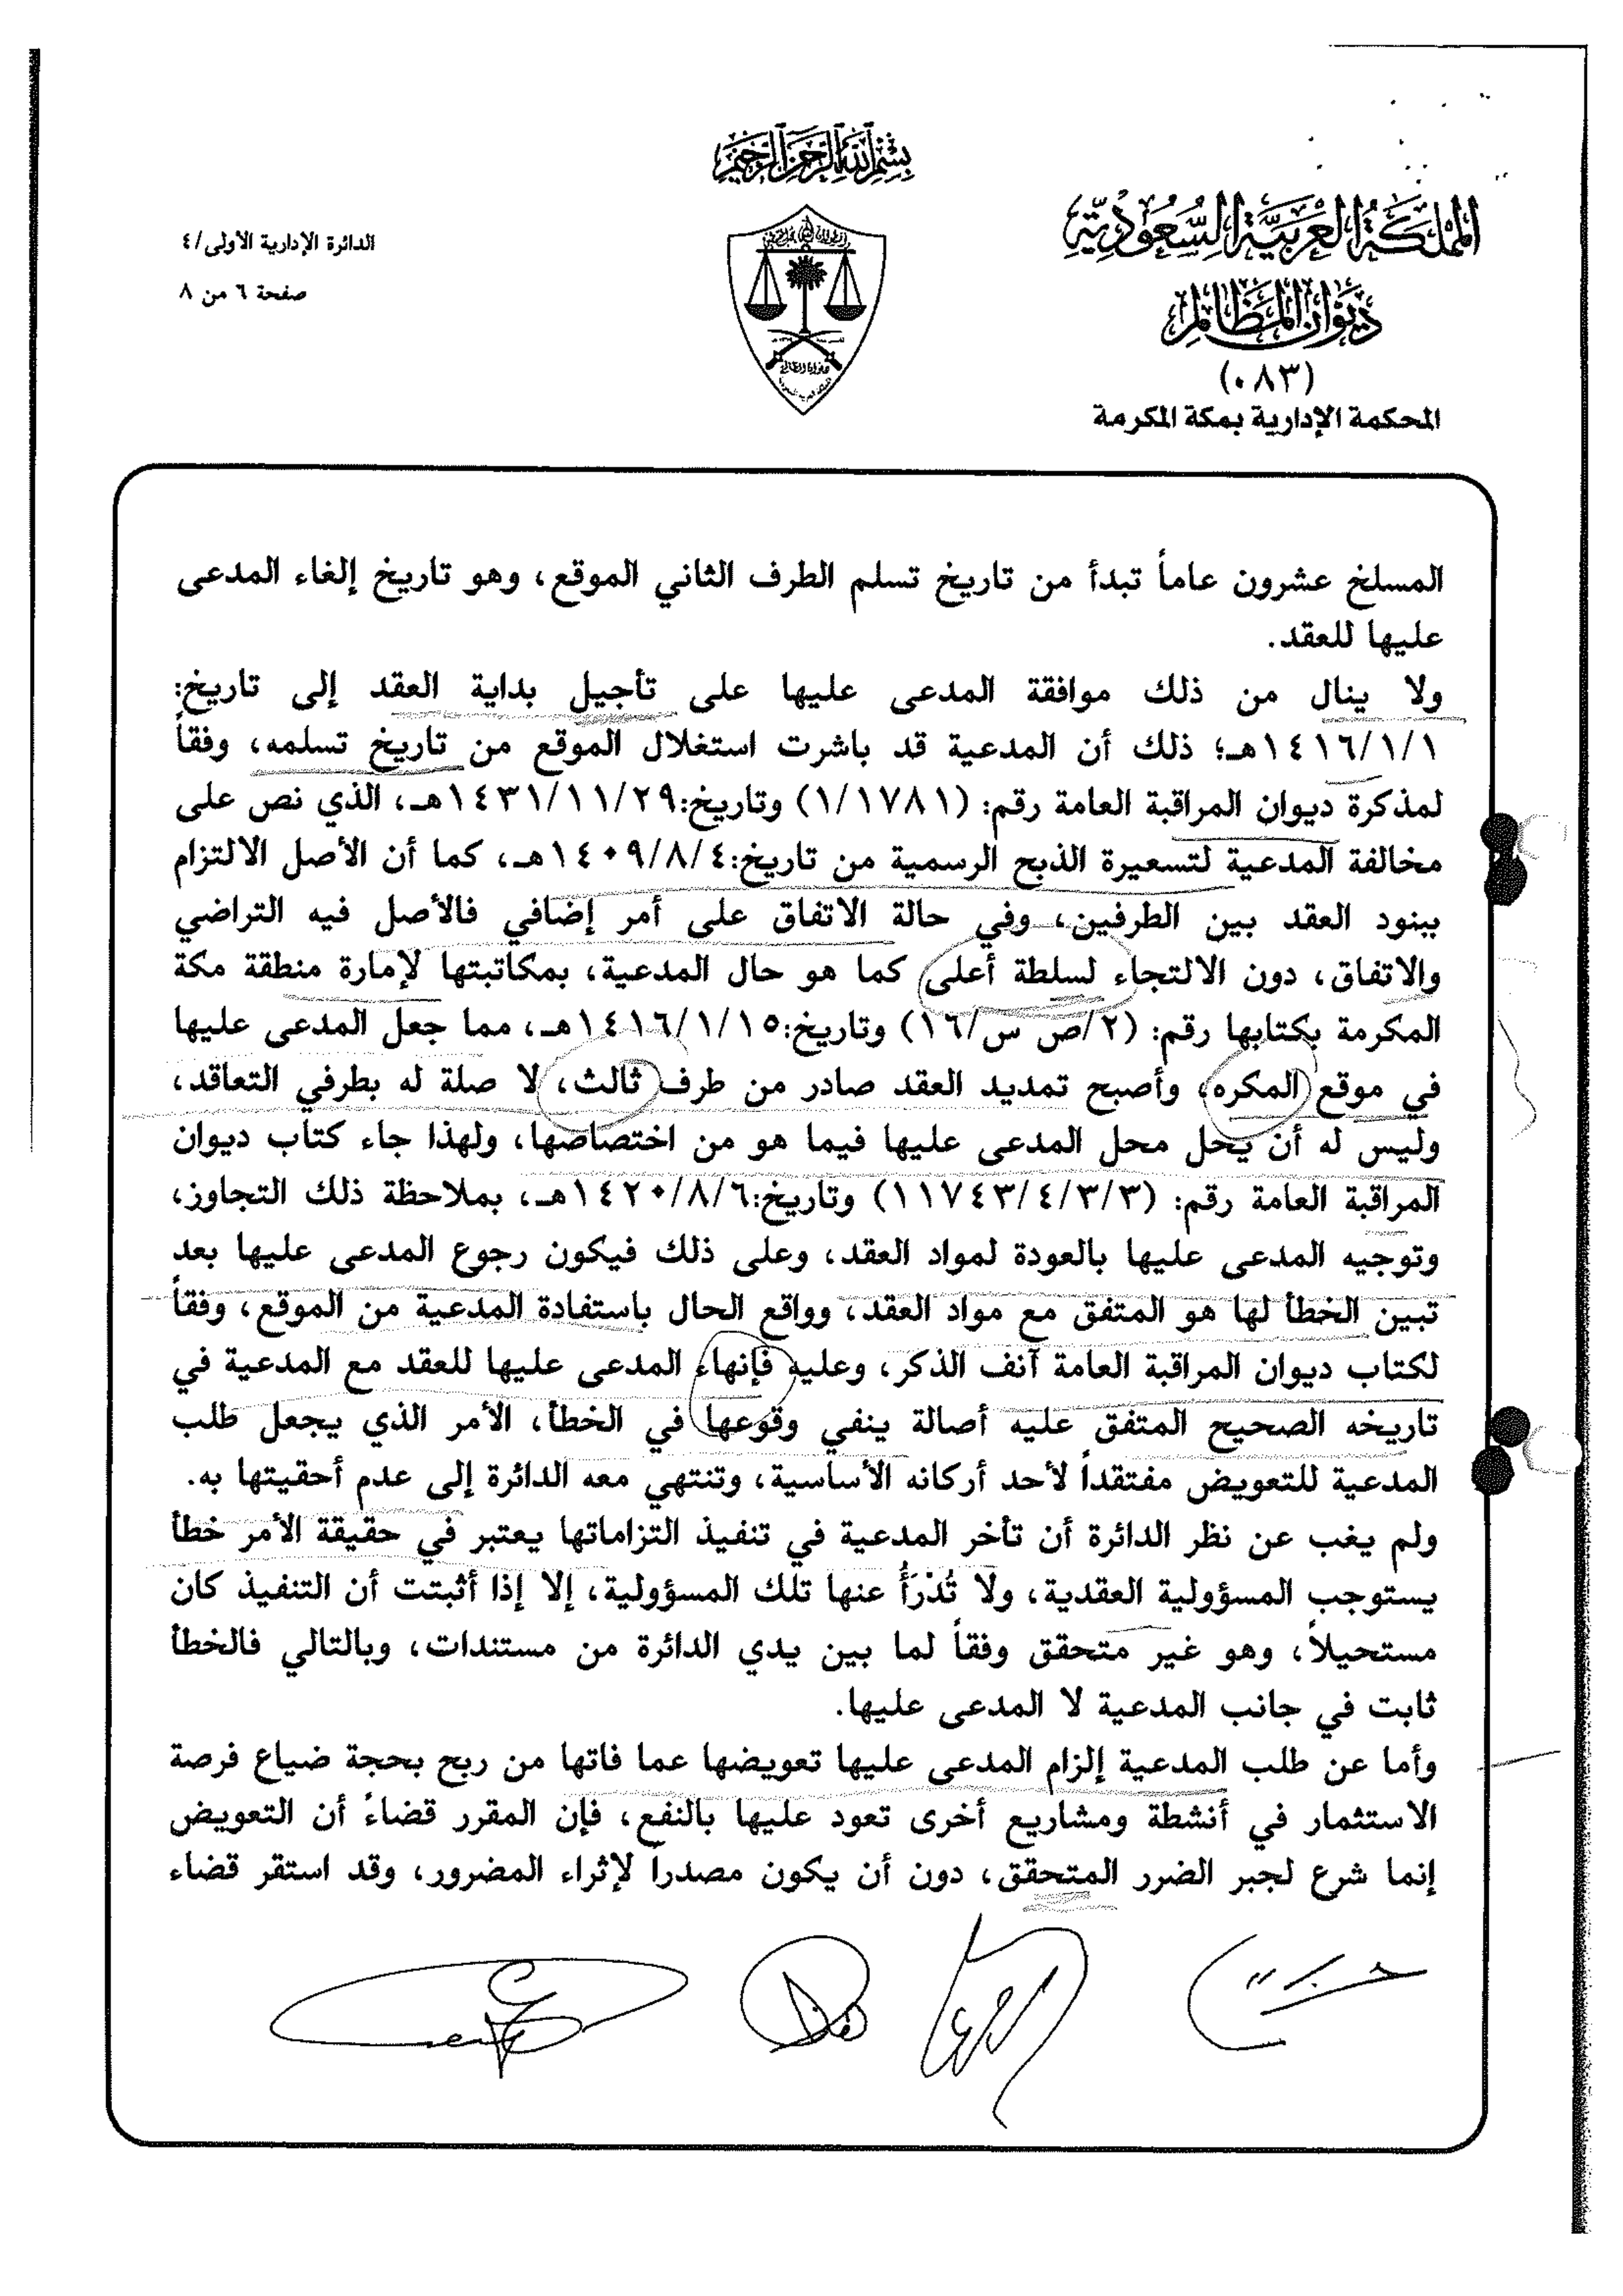 بسم الله الرحمن الرحيم
المملكة العربية السعودية
ديوان المظالم
(٠٨٣)
المحكمة الإدارية بمكة المكرمة
الدائرة الإدارية الأولى/٤
صفحة ٦ من ٨
المسلخ عشرون عاماً تبدأ من تاريخ تسلم الطرف الثاني الموقع، وهو تاريخ إلغاء المدعى
عليها للعقد.
ولا ينال من ذلك موافقة المدعى عليها على تأجيل بداية العقد إلى تاريخ:
١٤١٦/١/١هـ؛ ذلك أن المدعية قد باشرت استغلال الموقع من تاريخ تسلمه، وفقاً
لمذكرة ديوان المراقبة العامة رقم: (١/١٧٨١) وتاريخ:١٤٣١/١١/٢٩هـ، الذي نص على
مخالفة المدعية لتسعيرة الذبح الرسمية من تاريخ:١٤٠٩/٨/٤هـ، كما أن الأصل الالتزام
ببنود العقد بين الطرفين، وفي حالة الاتفاق على أمر إضافي فالأصل فيه التراضي
والاتفاق، دون الالتجاء لسلطة أعلى كما هو حال المدعية، بمكاتبتها لإمارة منطقة مكة
المكرمة بكتابها رقم: (٢/ص س/١٦) وتاريخ:١٤١٦/١/١٥هـ، مما جعل المدعى عليها
في موقع المكره، وأصبح تمديد العقد صادر من طرف ثالث، لا صلة له بطرفي التعاقد،
وليس له أن يحل محل المدعى عليها فيما هو من اختصاصها، ولهذا جاء كتاب ديوان
المراقبة العامة رقم: (١١٧٤٣/٤/٣/٣) وتاريخ:١٤٢٠/٨/٦هـ، بملاحظة ذلك التجاوز،
وتوجيه المدعى عليها بالعودة لمواد العقد، وعلى ذلك فيكون رجوع المدعى عليها بعد
تبين الخطأ لها هو المتفق مع مواد العقد، وواقع الحال باستفادة المدعية من الموقع، وفقاً
لكتاب ديوان المراقبة العامة آنف الذكر، وعليه فإنهاء المدعى عليها للعقد مع المدعية في
تاريخه الصحيح المتفق عليه أصالة ينفي وقوعها في الخطأ، الأمر الذي يجعل طلب
المدعية للتعويض مفتقداً لأحد أركانه الأساسية، وتنتهي معه الدائرة إلى عدم أحقيتها به.
ولم يغب عن نظر الدائرة أن تأخر المدعية في تنفيذ التزاماتها يعتبر في حقيقة الأمر خطأ
يستوجب المسؤولية العقدية، ولا تُدْرَأُ عنها تلك المسؤولية، إلا إذا أثبتت أن التنفيذ كان
مستحيلاً، وهو غير متحقق وفقاً لما بين يدي الدائرة من مستندات، وبالتالي فالخطأ
ثابت في جانب المدعية لا المدعى عليها.
وأما عن طلب المدعية إلزام المدعى عليها تعويضها عما فاتها من ربح بحجة ضياع فرصة
الاستثمار في أنشطة ومشاريع أخرى تعود عليها بالنفع، فإن المقرر قضاءً أن التعويض
إنما شرع لجبر الضرر المتحقق، دون أن يكون مصدراً لإثراء المضرور، وقد استقر قضاء